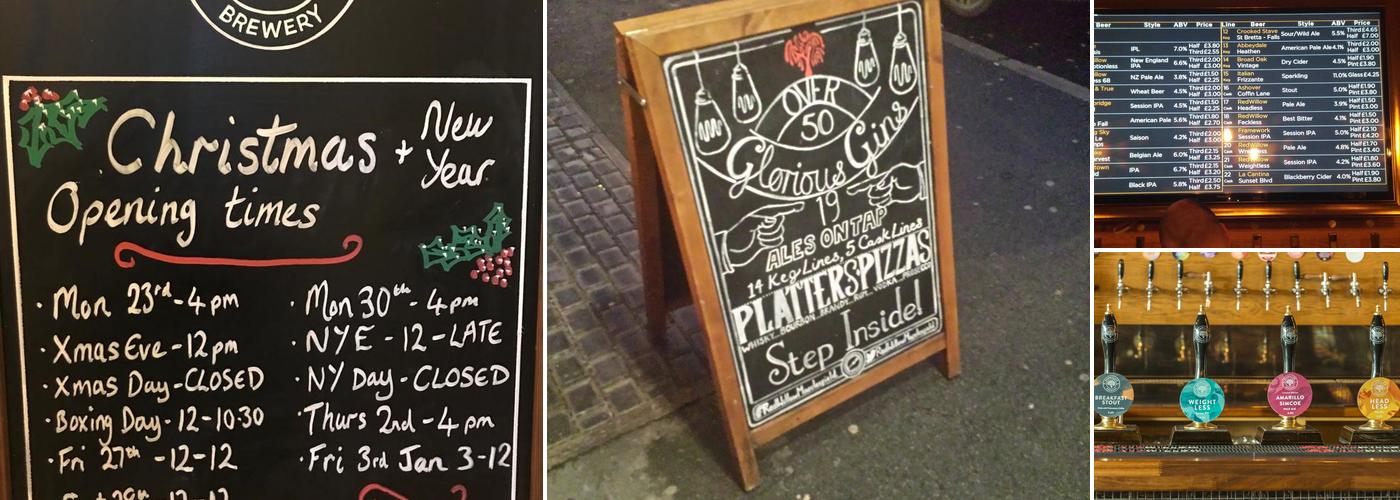 BREWERY
Christmas + New Year
Opening times
· Mon 23rd - 4pm
· Xmas Eve - 12pm
· Xmas Day - CLOSED
· Boxing Day - 12 - 10:30
· Fri 27th - 12 - 12
· Mon 30th - 4pm
· NYE - 12 - LATE
· NY Day - CLOSED
· Thurs 2nd - 4pm
· Fri 3rd Jan 3-12
OVER
50
Glorious Gins
19
ALES ON TAP
14 Keg Lines, 5 Cask Lines
PLATTERS PIZZAS
WHISKY BOURBON BRANDY RUM VODKA PROSECCO
Step Inside!
Beer Style ABV Price Line Beer Style ABV Price
IPL 7.0% Half £3.80 Third £2.55
New England IPA 6.6% Third £2.00 Half £3.00
NZ Pale Ale 3.8% Third £1.50 Half £2.25
Wheat Beer 4.5% Third £2.00 Half £3.00
Session IPA 4.5% Third £1.50 Half £2.25
American Pale 5.6% Third £1.80 Half £2.70
Saison 4.2% Third £2.00 Half £3.00
Belgian Ale 6.0% Third £2.15 Half £3.25
IPA 6.7% Third £2.15 Half £3.20
Black IPA 5.8% Third £2.50 Half £3.75
12 Keg Crooked Stave St Bretta - Falls Sour/Wild Ale 5.5% Third £4.65 Half £7.00
13 Keg Abbeydale Heathen American Pale Ale 4.1% Third £2.00 Half £3.00
14 Keg Broad Oak Vintage Dry Cider 4.5% Half £1.90 Pint £3.80
15 Keg Italian Frizzante Sparkling 11.0% Glass £4.25
16 Cask Ashover Coffin Lane Stout 5.0% Half £1.90 Pint £3.80
17 Cask RedWillow Headless Pale Ale 3.9% Half £1.50 Pint £3.00
18 Cask RedWillow Feckless Best Bitter 4.1% Half £1.50 Pint £3.00
Framework Session IPA Session IPA 5.0% Half £2.10 Pint £4.20
20 Cask RedWillow Pale Ale 4.8% Half £1.70 Pint £3.40
21 Cask RedWillow Weightless Session IPA 4.2% Half £1.80 Pint £3.60
22 Cask La Cantina Sunset Blvd Blackberry Cider 4.0% Half £1.90 Pint £3.80
BREAKFAST STOUT
WEIGHT LESS
AMARILLO SIMCOE
HEAD LESS